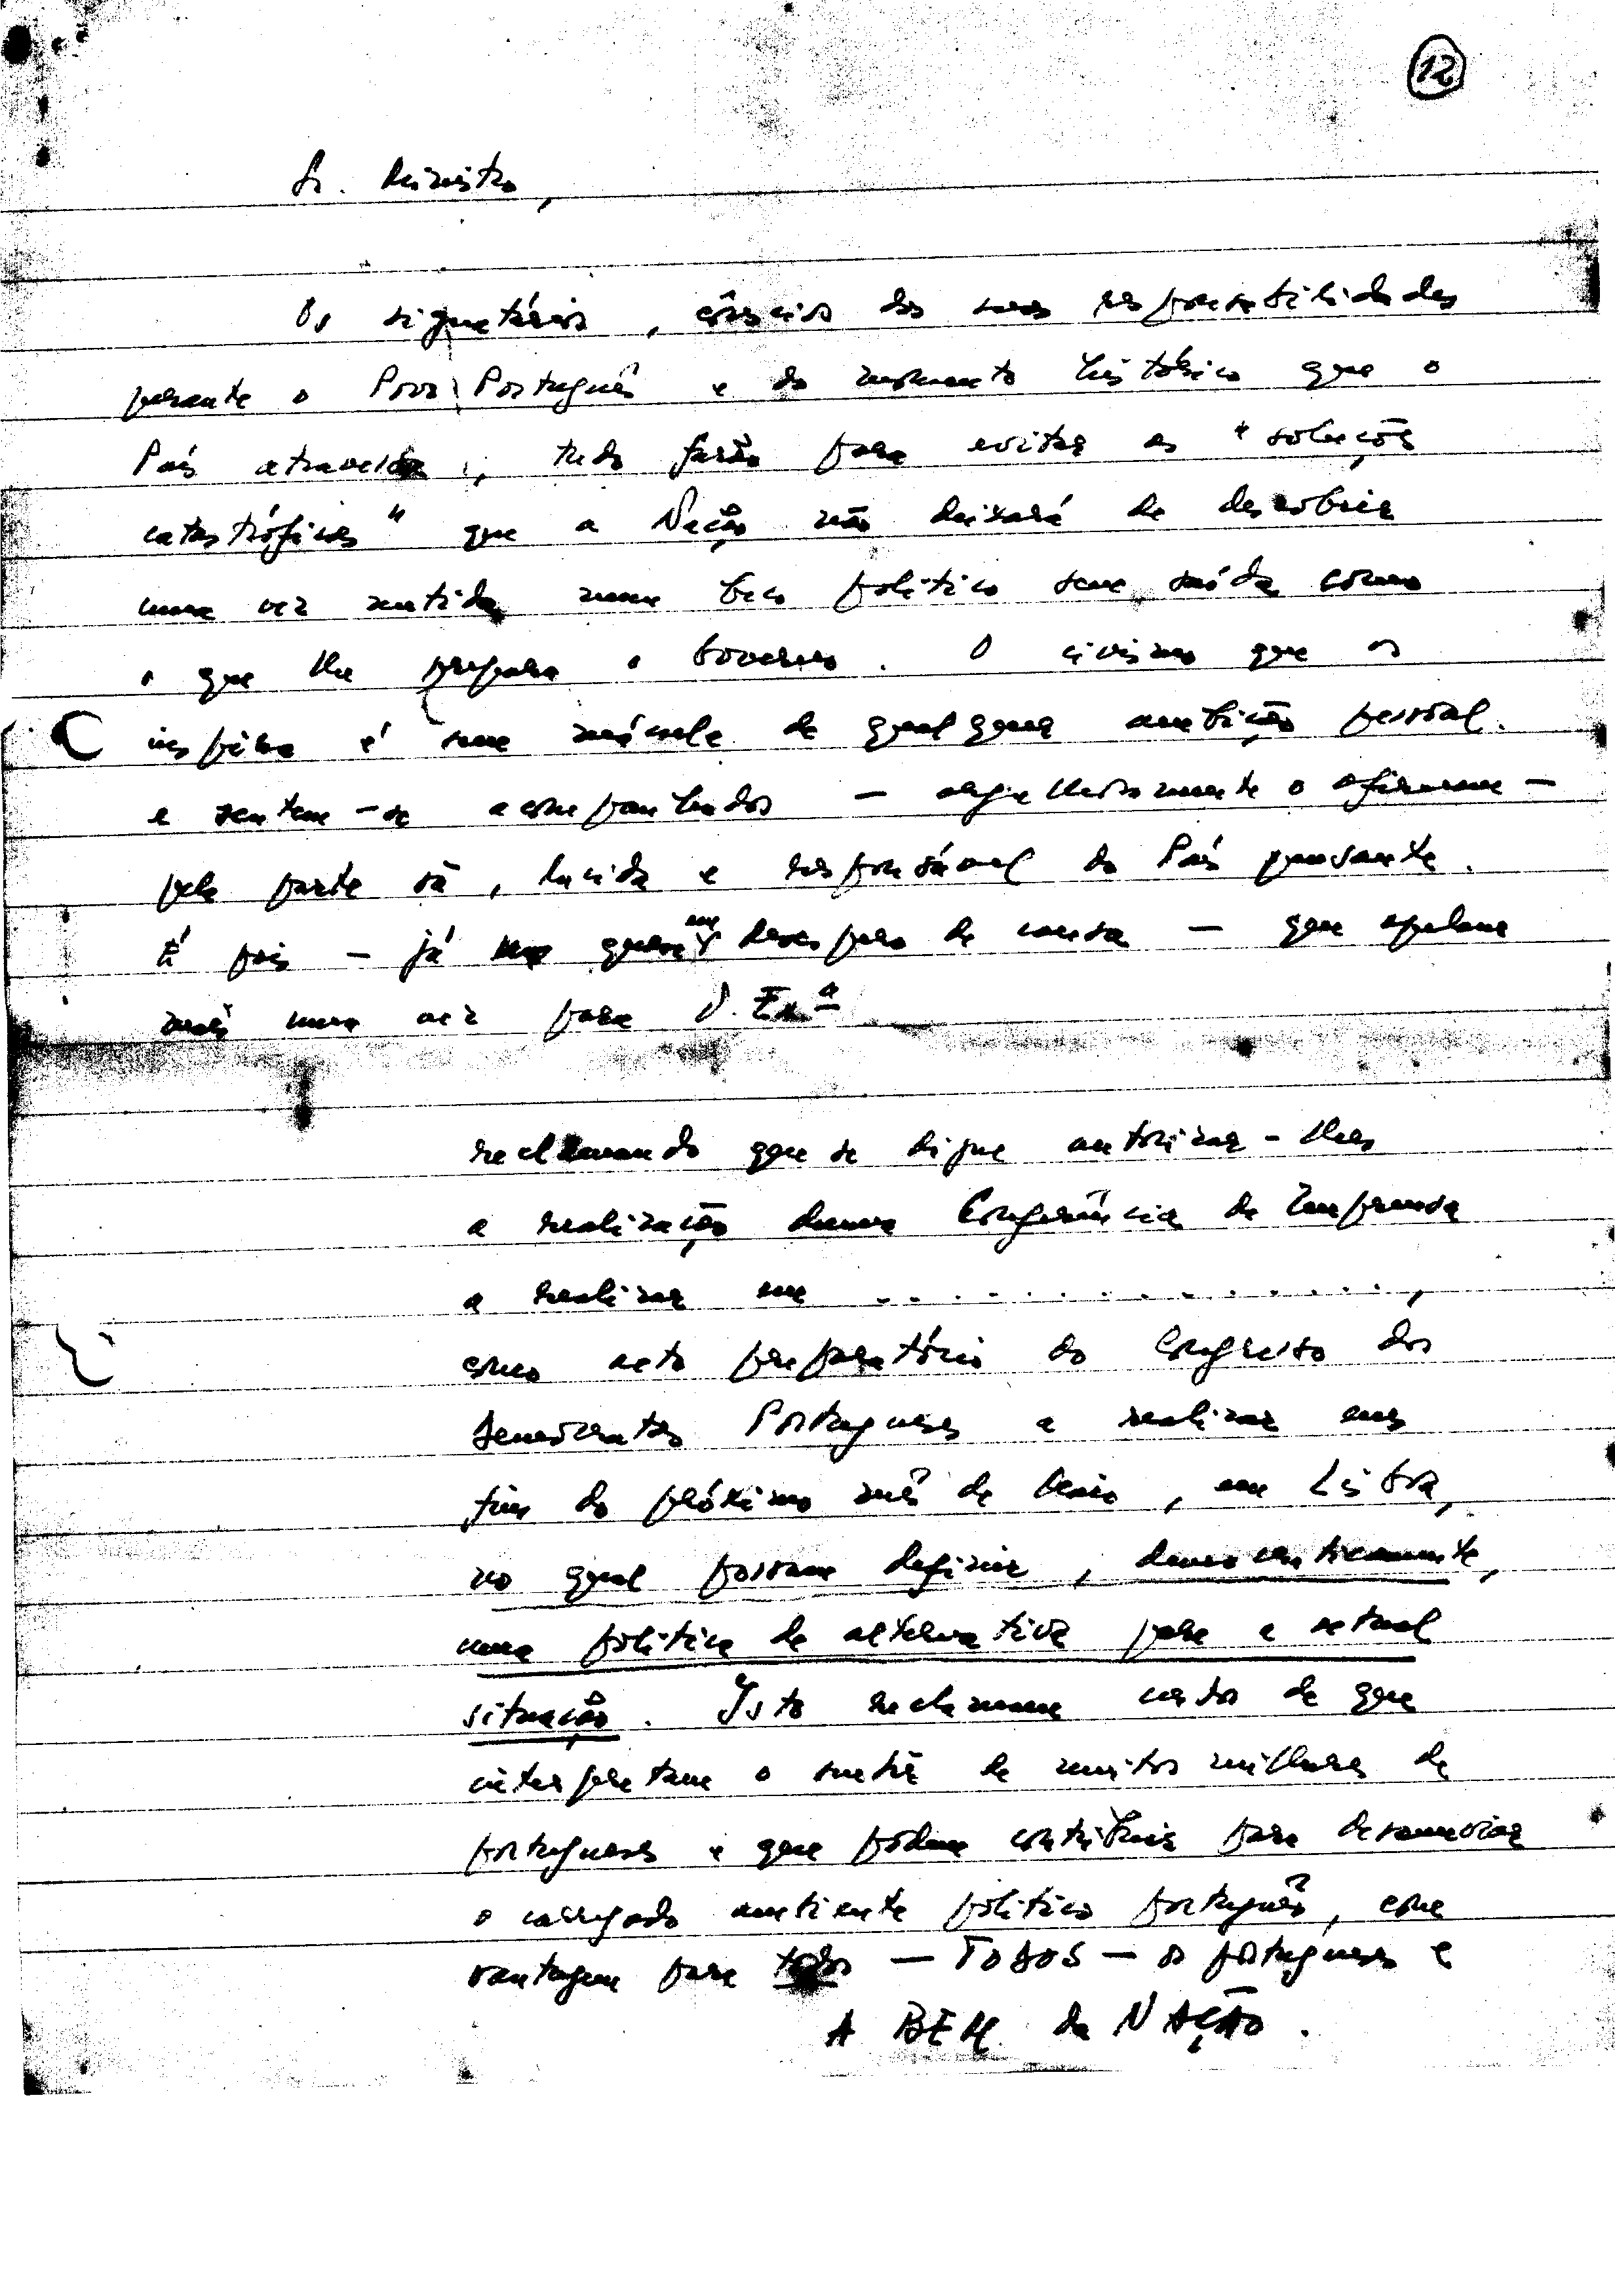 12
Sr. Ministro,
Os signatários, cônscios das suas responsabilidades
perante o Povo Português e do momento histórico que o
País atravessa, tudo farão para evitar as "soluções
catastróficas" que a Nação não deixará de descobrir
uma vez metida num beco político sem saída como
o que lhe prepara o Governo. O civismo que os
inspira é sem mácula de qualquer ambição pessoal.
e sentem-se acompanhados — orgulhosamente o afirmam —
pela parte sã, lucida e responsável do País pensante.
É pois — já quase em desespero de causa — que apelam
mais uma vez para V. Exª
reclamando que se digne autorizar-lhes
a realização duma Conferência de Imprensa
a realizar em ..............,
como acto preparatório do Congresso dos
Democratas Portugueses a realizar em
fins do próximo mês de Maio, em Lisboa,
no qual possam definir, democraticamente,
uma política de alternativa para a actual
situação. Isto reclamam certos de que
interpretam o sentir de muitos milhares de
portugueses e que podem contribuir para desanuviar
o carregado ambiente político português, com
vantagem para todos — TODOS — os portugueses e
A BEM da NAÇÃO.